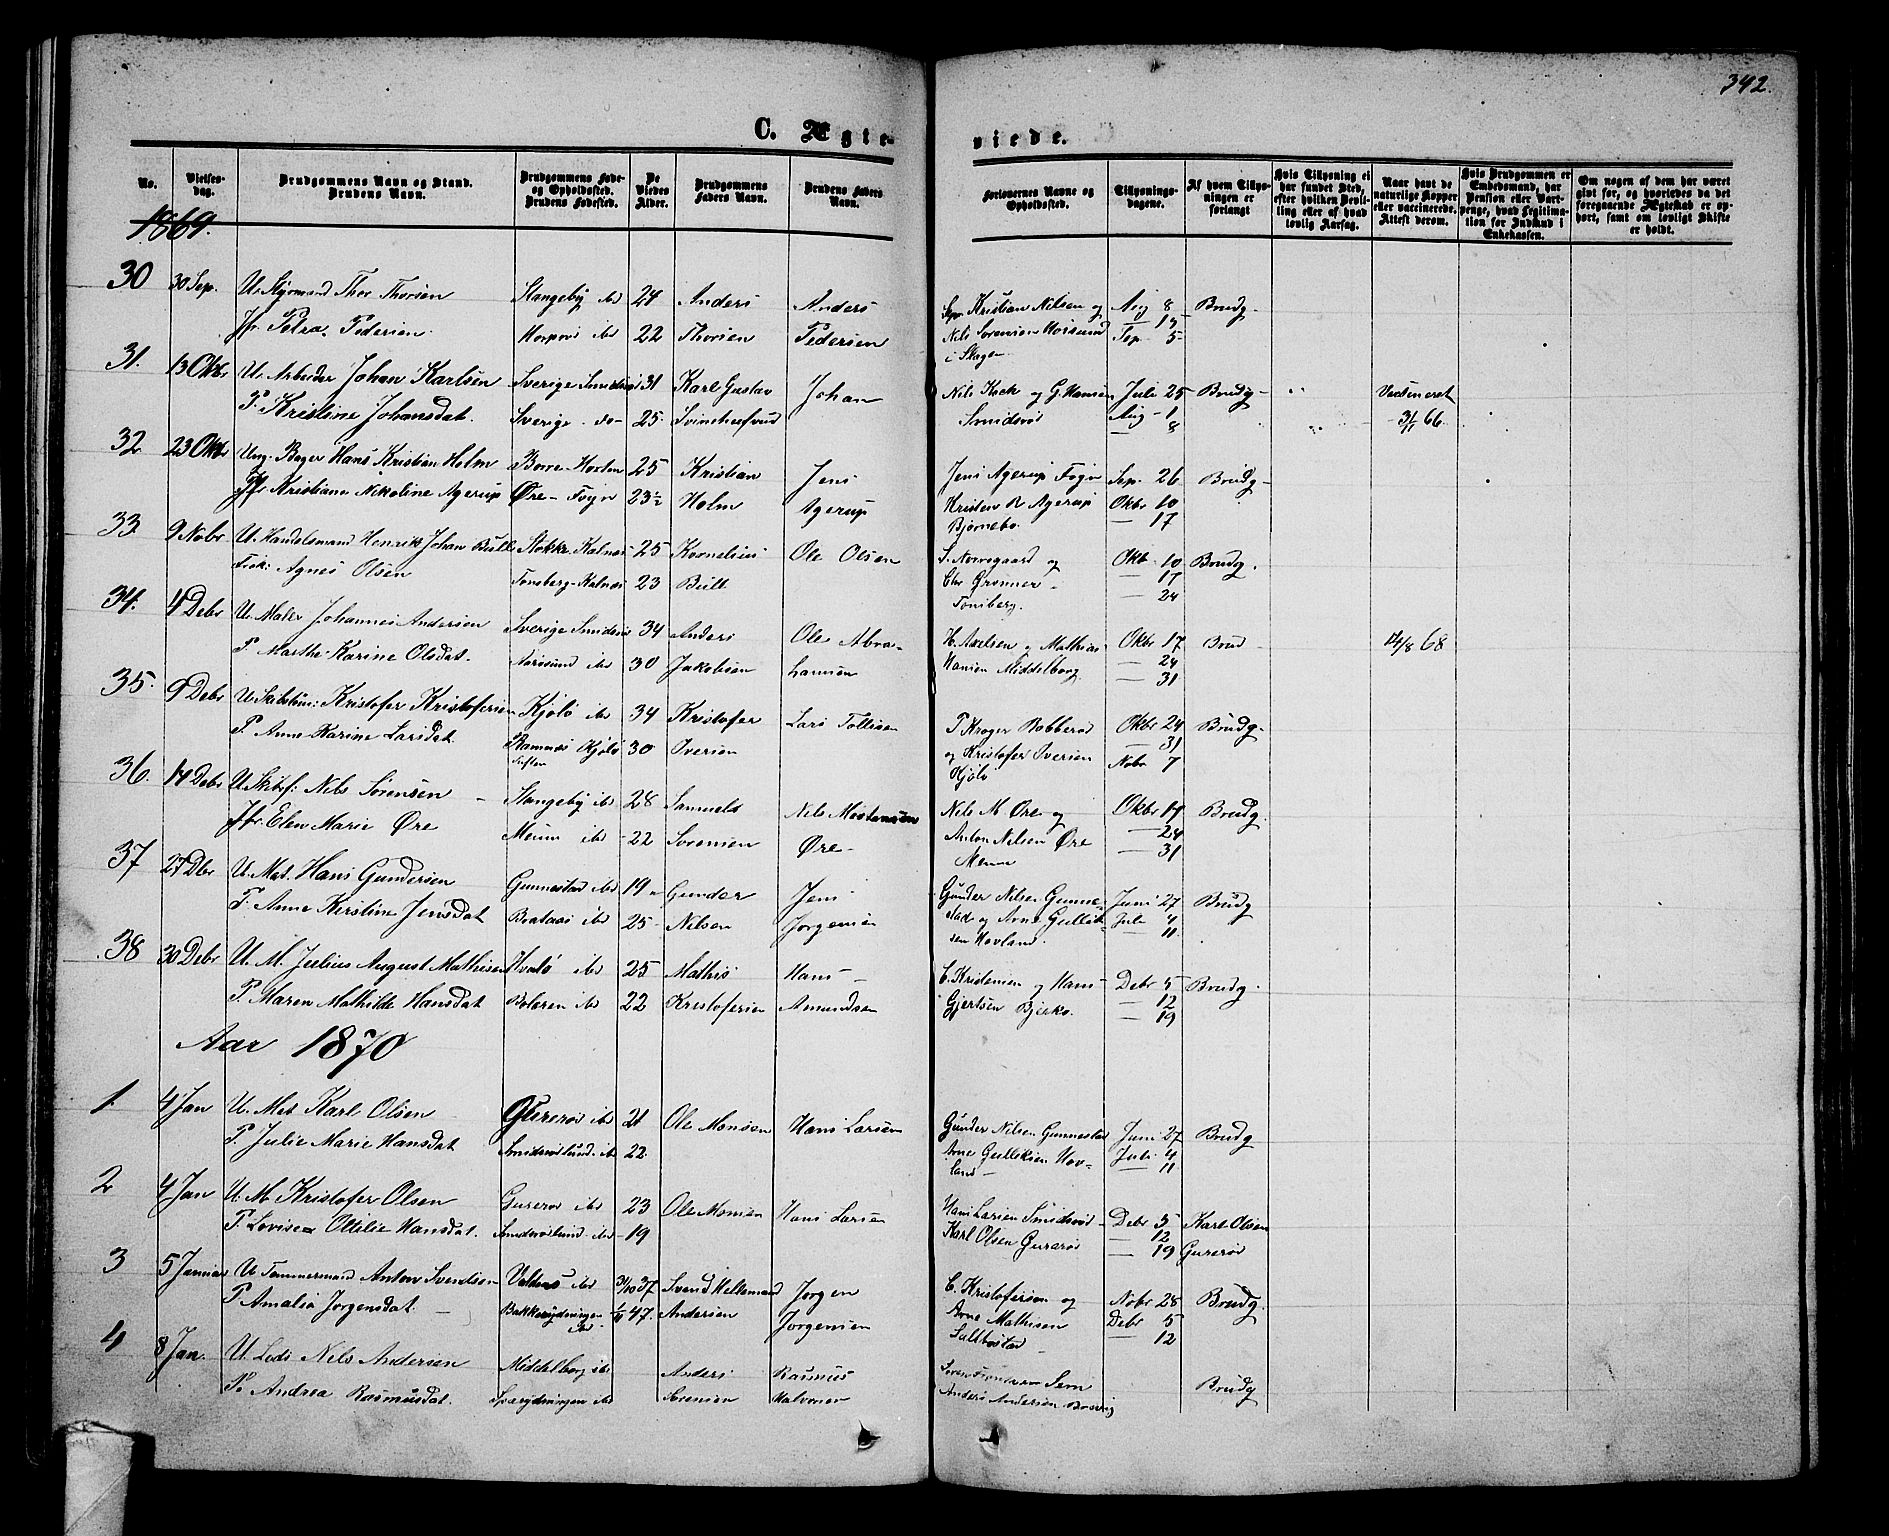 342.
C. Ægte-
viede.
No.
Vielses-
dag.
Brudgommens Navn og Stand.
Brudens Navn.
Brudgommens Føde-
og Opholdssted.
Brudens Fødested.
De
Viedes
Alder.
Brudgommens
Faders Navn.
Brudens Faders
Navn.
Forlovernes Navne og
Opholdssted.
Tillysnings-
dagene.
Af hvem Tillys-
ningen er
forlangt
Hvis Tillysning ei
har fundet Sted,
efter hvilken Bevil-
ling eller af hvad
lovlig Aarsag.
Naar havt de
naturlige Kopper
eller vaccinerede.
Attest derom.
Hvis Brudgommen er
Embedsmand, har
Pension eller Vart-
penge, hvad Legitima-
tion for Indskud i
Enkekassen.
Om nogen af dem har været
gift før, og hvorledes da det
foregaaende Ægteskab er op-
hørt, samt om lovligt Skifte
er holdt.
1869.
30 30 Sep. U. Styrmand Thor Thorsen Slangeby ibd 24 Anders Anders Kristian Nilsen og Aug 8 Brudg.
Jfr. Petra Pedersen ibd 22 Thorsen Pedersen Nils Sørensen — 15
i Skagen Sep. 5
31. 13 Okbr U. Arbeider Johan Karlsen Sverige Smidsrød 31 Karl Gustav Johan Nils Kock og G. Hansen Juli 25 Brudg. Vactineret
P. Kristine Johansdat. Sverige do 25 Svinehufvud Smidsrød Aug 1 3/11 66.
— 8
32 23 Okbr Ung. Bager Hans Kristian Holm Borre Horten 25 Kristian Jens Jens Agerup Føyn Sep. 26 Brudg
Jfr Kristiane Nikoline Agerup Øre - Føyn 23½ Holm Agerup Kristen R Agerup Okbr 10
Bjørnebo. — 17
33 9 Nobr U. Handelsmand Henrik Johan Bull Stokke Kalnæs 25 Kornelius Ole Olsen S. Nørregaard og Okbr 10 Brudg.
Frøk. Agnes Olsen Tønsberg-Kalnæs 23 Bull Chr Grønner — 17
Tønsberg. — 24
34. 4 Debr U. Maler Johannes Andersen Sverige Smidsrød 34 Anders Ole Abra- H. Axelsen og Mathias Okbr 17 Brud 14/8 68
P. Marthe Karine Olsdat. Aarøsund ibd 30 Jakobsen hamsen Hansen Middelborg. — 24
— 31
35. 9 Debr U. Skibstøm: Kristofer Kristofersen Kjølø ibd 34 Kristofer Lars Tollisen P Krøger Robberød Okbr 24 Brudg.
P. Anne Karine Larsdat. Ramnæs Kjølø 30 Iversen og Kristofer Iversen — 31
Kjølø Nobr 7
36. 14 Debr U. Skibsf: Nils Sørensen Slangeby ibd 28 Samuels Nils Mortensen Nils M Øre og Okbr 17 Brudg.
Jfr. Elen Marie Øre Meum ibd 22 Sørensen Øre Anton Nilsen Øre — 24
Meum — 31
37 27 Dbr U. Mat. Hans Gundersen Gunnestad ibd 19 Gunder Jens Gunder Nilsen Gunne- Juni 27 Brudg
P. Anne Kirstine Jensdat Brataas ibd 25 Nilsen Jørgensen stad og Arne Gullik- Juli 4
sen Hovland. 11
38 30 Debr U. M. Julius August Mathisen Hvalø ibd 25 Mathis Hans C. Kristensen og Hans Debr 5 Brudg.
P. Maren Mathilde Hansdat Bolæren ibd 22 Kristofersen Amundsen Gjertsen Bjerkø. — 12
— 19
Aar 1870
1. 4 Jan U. Mat Karl Olsen Gurerød ibd 21 Ole Monsen Hans Larsen Gunder Nilsen Gunnestad Juni 27 Brudg
P. Julie Marie Hansdat Smidsrødsund ibd 22 Arne Gulliksen Hov- Juli 4
land — 11
2 4 Jan U. M. Kristofer Olsen Gurerød ibd 23 Ole Monsen Hans Larsen Hans Larsen Smidsrød Debr 5 Karl Olsen
P. Lovise Ottilie Hansdat. Smidsrødsund ibd 19 Karl Olsen Gurerød — 12
— 19 Gurerød
3 5 Januar U Tømmermand Anton Svendsen Valnes ibd 31/10 37 Svend Jørgen C. Kristofersen og Nobr 28 Brudg.
P. Amalia Jørgensdat. Bakkerydningen 1/11 47. Andersen Jørgensen Arne Mathisen Debr 5
ibd. Saltbostad — 12
4 8 Jan. U Lods Nils Andersen Middelborg ibd Anders Rasmus Søren Sem Brudg
P. Andrea Rasmusdat. ibd Sørensen Halvorsen Anders Andersen